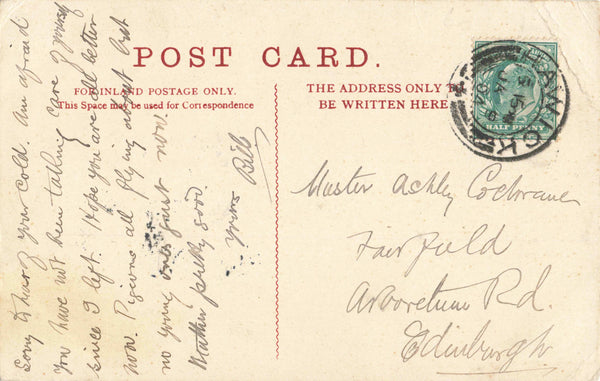 POST CARD.
FOR INLAND POSTAGE ONLY.
This Space may be used for Correspondence
THE ADDRESS ONLY TO
BE WRITTEN HERE
HAWICK
HALF PENNY
Sorry to hear of your cold. Am afraid
you have not been taking care of yourself
since I left. Hope you are all better
now. Pigeons all flying about but
no young ones just now.
Weather pretty good.
Yours Bill
Master Ashley Cochrane
Fairfield
Arboretum Rd.
Edinburgh